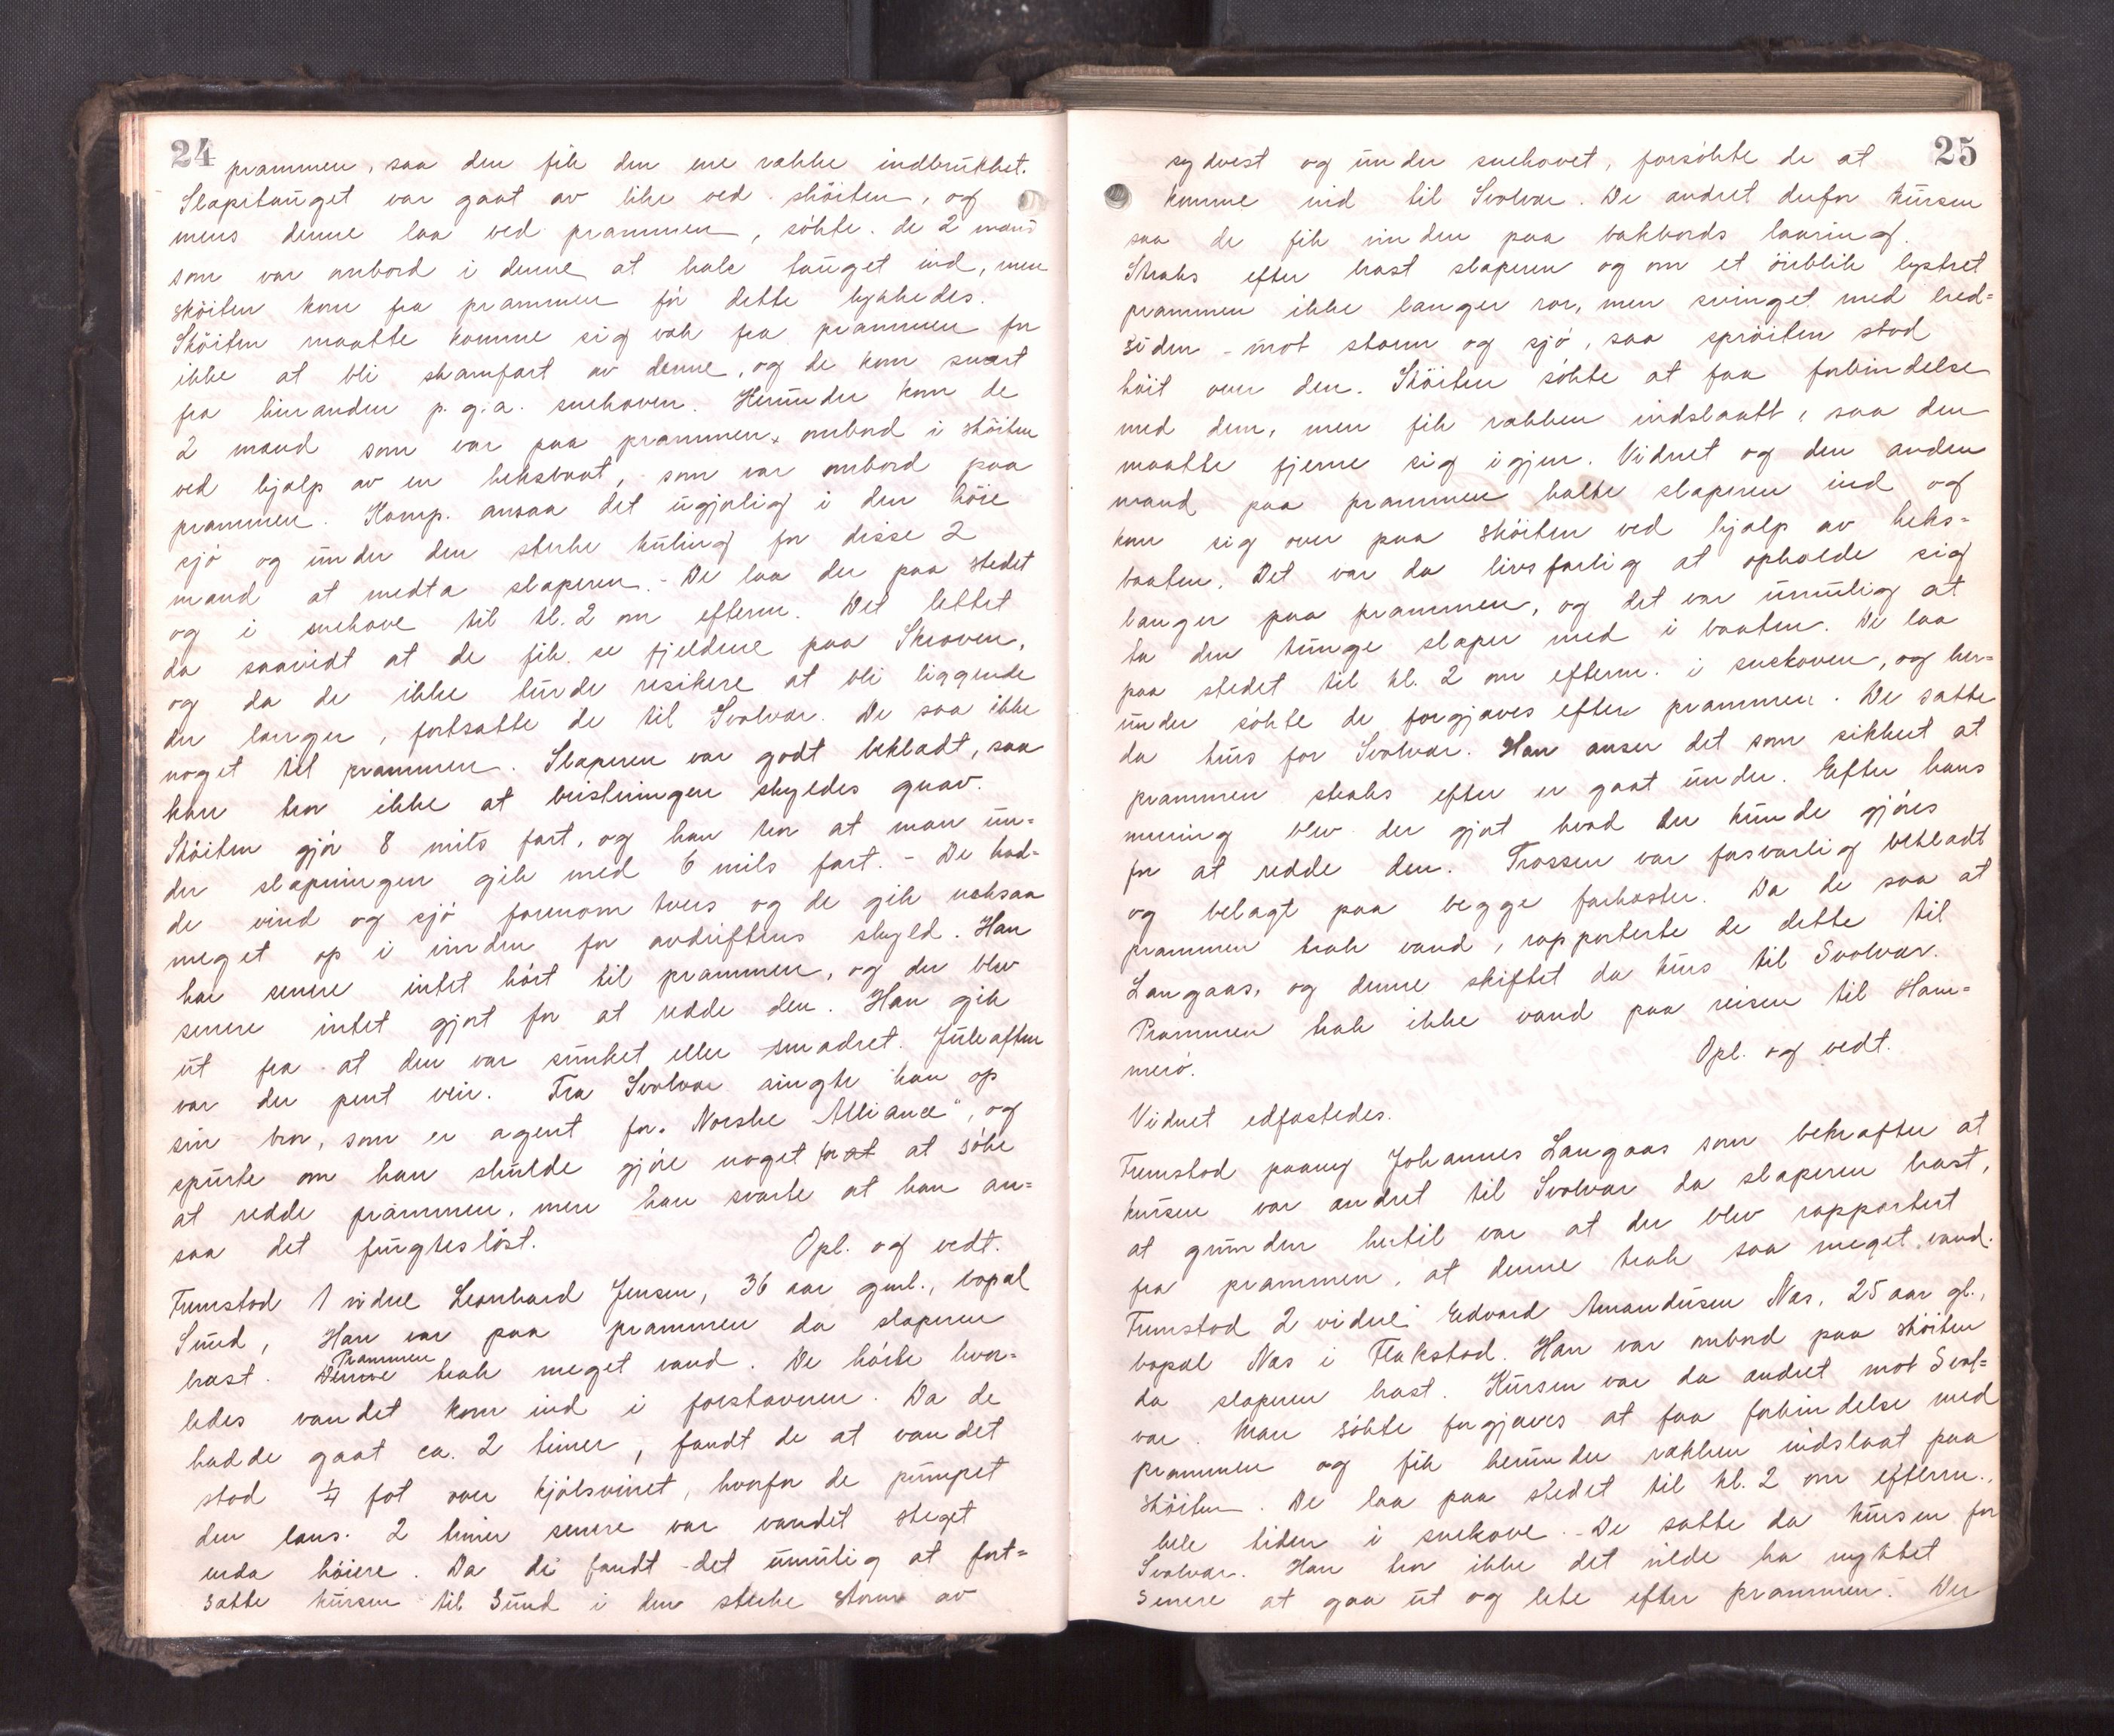 24
prammen, saa den fik den ene række indbrukket.
Slæpetauget var gaat av like ved skøiten, og
mens denne laa ved prammen, søkte de 2 mand
som var ombord i denne at hale tauget ind, men
skøiten kom fra prammen før dette lykkedes.
Skøiten maatte komme sig væk fra prammen for
ikke at bli skamfært av denne, og de kom snart
fra hinanden p.g.a. snekoven. Herunder kom de
2 mand som var paa prammen, ombord i skøiten
ved hjælp av en heksbaat, som var ombord paa
prammen. Komp. ansaa det ugjørlig i den høie
sjø og under den sterke kuling for disse 2
mand at medta slæperen. - De laa der paa stedet
og i snekove til kl. 2 om efterm. Det lettet
da saavidt at de fik se fjeldene paa Skroven,
og da de ikke turde resikere at bli liggende
der længer, fortsatte de til Svolvær. De saa ikke
noget til prammen. Slæperen var godt beklædt, saa
han tror ikke at bristningen skyldes gnav.
Skøiten gjør 8 mils fart, og han tror at man un-
der slæpningen gik med 6 mils fart. - De had-
de vind og sjø forenom tvers og de gik ogsaa
meget op i vinden for avdriftens skyld. Han
har senere intet hørt til prammen, og der blev
senere intet gjort for at redde den. Han gik
ut fra at den var sunket eller smadret. Juleaften
var der pent veir. Fra Svolvær ringte han op
sin bror, som er agent for "Norske Alliance", og
spurte om han skulde gjøre noget for at at søke
at redde prammen, men han svarte at han an-
saa det frugtesløst. Opl. og vedt.
Fremstod 1 vidne Leonhard Jensen, 36 aar gml., bopæl
Sund, Han var paa prammen da slæperen
Prammen
brast. Denne trak meget vand. De hørte hvor-
ledes vandet kom ind i forstavnen. Da de
hadde gaat ca. 2 timer, fandt de at vandet
stod ¼ fot over kjølsvinet, hvorfor de pumpet
den læns. 2 timer senere var vandet steget
enda høiere. Da de fandt det umulig at fort-
sætte kursen til Sund i den sterke storm av
25
sydvest og under snekovet, forsøkte de at
komme ind til Svolvær. De ændret derfor kursen
saa de fik vinden paa bakbords laaring.
Straks efter brast slæperen og om et øieblik lystret
prammen ikke længer ror, men svinget med bred-
siden mot storm og sjø, saa sprøiten stod
høit over den. Skøiten søkte at faa forbindelse
med dem, men fik rækken indslaatt, saa den
maatte fjerne sig igjen. Vidnet og den anden
mand paa prammen halte slæperen ind og
kom sig over paa skøiten ved hjælp av heks-
baaten. Det var da livsfarlig at opholde sig
længer paa prammen, og det var umulig at
ta den tunge slæper med i baaten. De laa
paa stedet til kl. 2 om efterm. i snekoven, og her-
under søkte de forgjæves efter prammen. De satte
da kurs for Svolvær. Han anser det som sikkert at
prammen straks efter er gaat under. Efter hans
mening blev der gjort hvad der kunde gjøres
for at redde den. Trossen var forsvarlig beklædt
og belagt paa begge farkoster. Da de saa at
prammen trak vand, rapporterte de dette til
Langaas, og denne skiftet da kurs til Svolvær.
Prammen trak ikke vand paa reisen til Ham-
merø. Opl. og vedt.
Vidnet edfæstedes.
Fremstod paany Johannes Langaas som bekræfter at
kursen var ændret til Svolvær da slæperen brast,
at grunden hertil var at der blev rapportert
fra prammen, at denne trak saa meget vand.
Fremstod 2 vidne Edvard Amandusen Næs, 25 aar gl.,
bopæl Næs i Flakstad. Han var ombord paa skøiten
da slæperen brast. Kursen var da ændret mot Svol-
vær. Man søkte forgjæves at faa forbindelse med
prammen og fik herunder rækken indslaat paa
skøiten. De laa paa stedet til kl. 2 om efterm.,
hele tiden i snekove. - De satte da kursen for
Svolvær. Han tror ikke det vilde ha nyttet
senere at gaa ut og lete efter prammen. Der